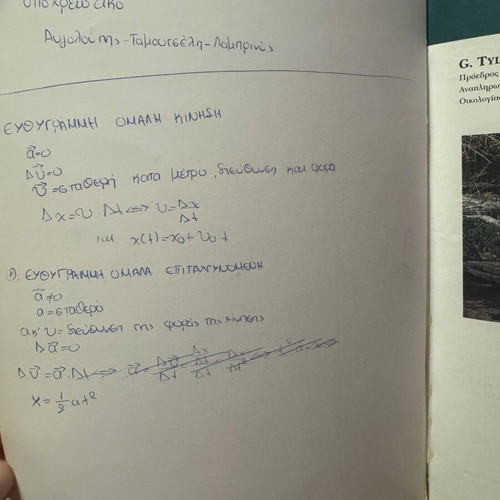 υποχρεωτικό
Αυγολούπης-Ταμουτσέλη-Λαμπρινός
ΕΥΘΥΓΡΑΜΜΗ ΟΜΑΛΗ ΚΙΝΗΣΗ
a⃗=0
Δυ⃗=0
υ⃗=σταθερή κατά μέτρο, διεύθυνση και φορά
Δx=υ·Δt⇔υ=Δx/Δt
και x(t)=x₀+υ₀t
ΕΥΘΥΓΡΑΜΜΗ ΟΜΑΛΑ ΕΠΙΤΑΧΥΝΟΜΕΝΗ
a⃗≠0
a=σταθερό
διεύθυνση της φοράς της κίνησης
Δa⃗=0
Δυ⃗=a⃗·Δt⇔
x=½at²
G. TYL
Πρόεδρος
Αναπληρω
Οικολογίας